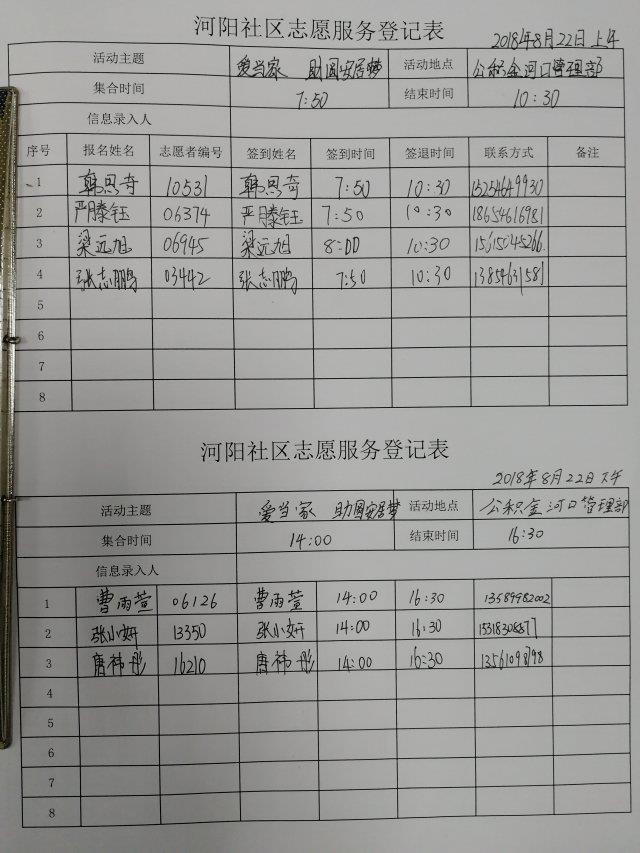 河阳社区志愿服务登记表
2018年8月22日上午
活动主题 爱当家 助圆安居梦 活动地点 公积金河口管理部
集合时间 7:50 结束时间 10:30
信息录入人
序号 报名姓名 志愿者编号 签到姓名 签到时间 签退时间 联系方式 备注
1 韩恩奇 10531 韩恩奇 7:50 10:30 15254649930
2 严滕钰 06374 严滕钰 7:50 10:30 18654616981
3 梁远旭 06945 梁远旭 8:00 10:30 15615045266
4 张志鹏 03442 张志鹏 7:50 10:30 13854631581
5
6
7
8
河阳社区志愿服务登记表
2018年8月22日下午
活动主题 爱当家 助圆安居梦 活动地点 公积金河口管理部
集合时间 14:00 结束时间 16:30
信息录入人
1 曹雨萱 06126 曹雨萱 14:00 16:30 13589982002
2 张小妍 13350 张小妍 14:00 16:30
3 唐祎彤 16210 唐祎彤 14:00 16:30 13561098798
4
5
6
7
8